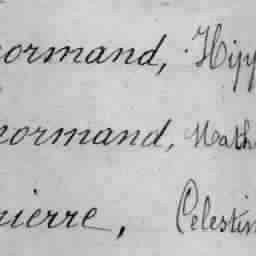 normand, Hipp
normand, Math
pierre, Celestin